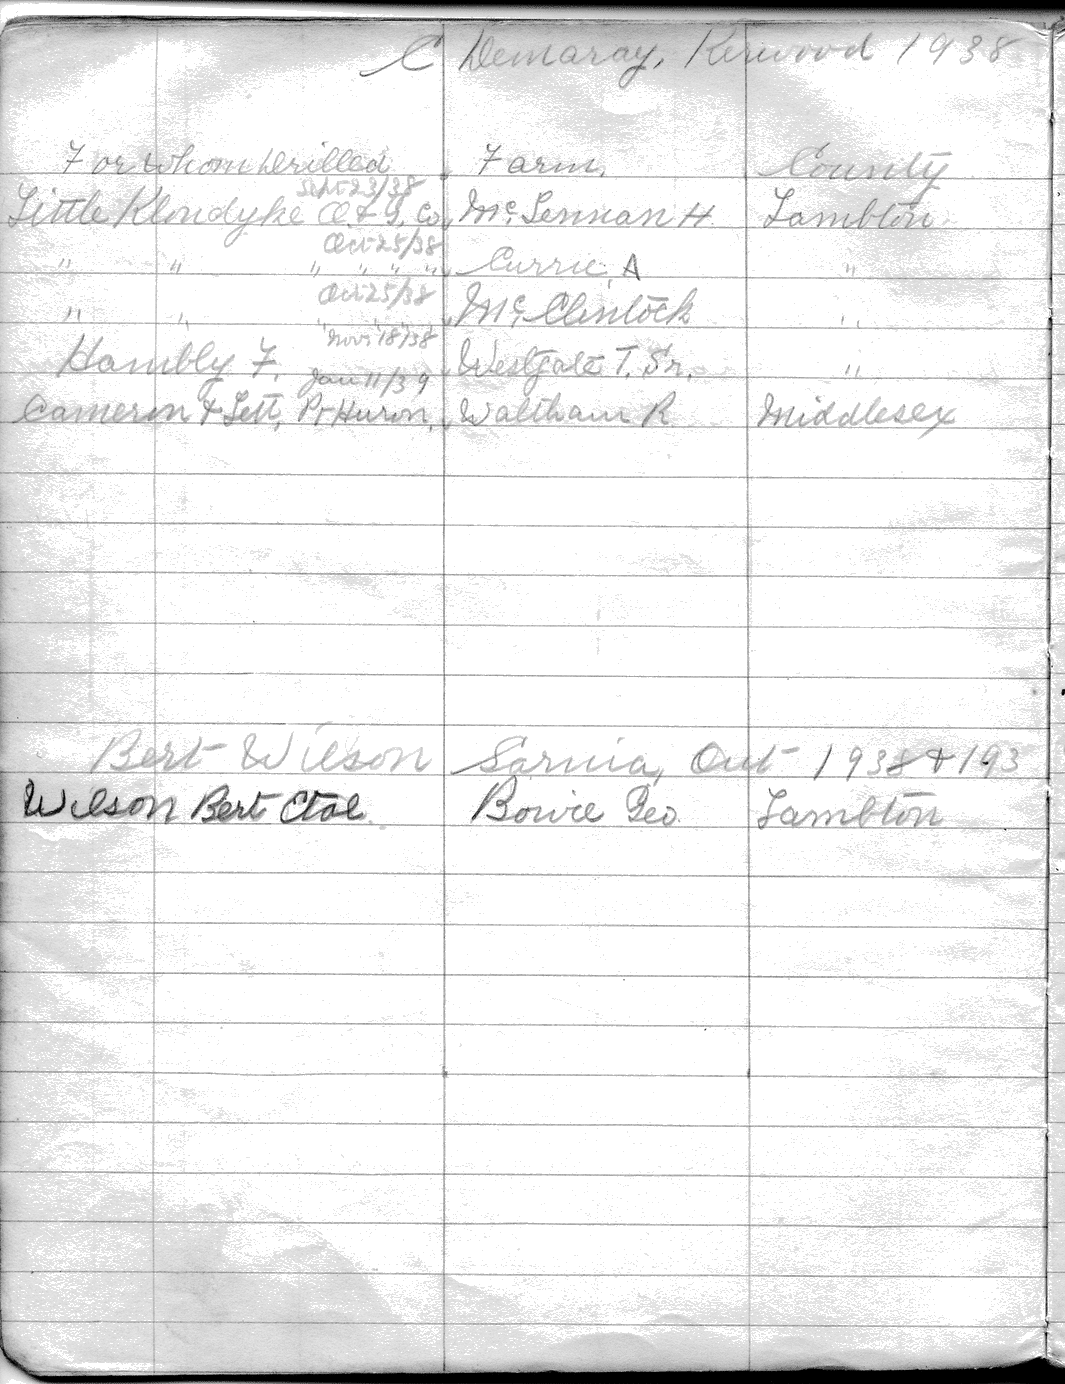 C Demaray, Kerwood 1938
For Whom Drilled Farm, County
Sept 23/38
Little Klondyke O. & G. Co., Mc. Lennan H. Lambton
Oct 25/38
" " " " " " Currie, A "
Oct 25/38
" " " " " " Mc. Clintock "
Nov. 18/38
Hambly F. Westgate T. Sr. "
Jan 11/39
Cameron & Lett, Pt Huron, Waltham R. Middlesex
Bert Wilson Sarnia, Ont 1938 & 193
Wilson Bert Etal. Bowie Geo. Lambton